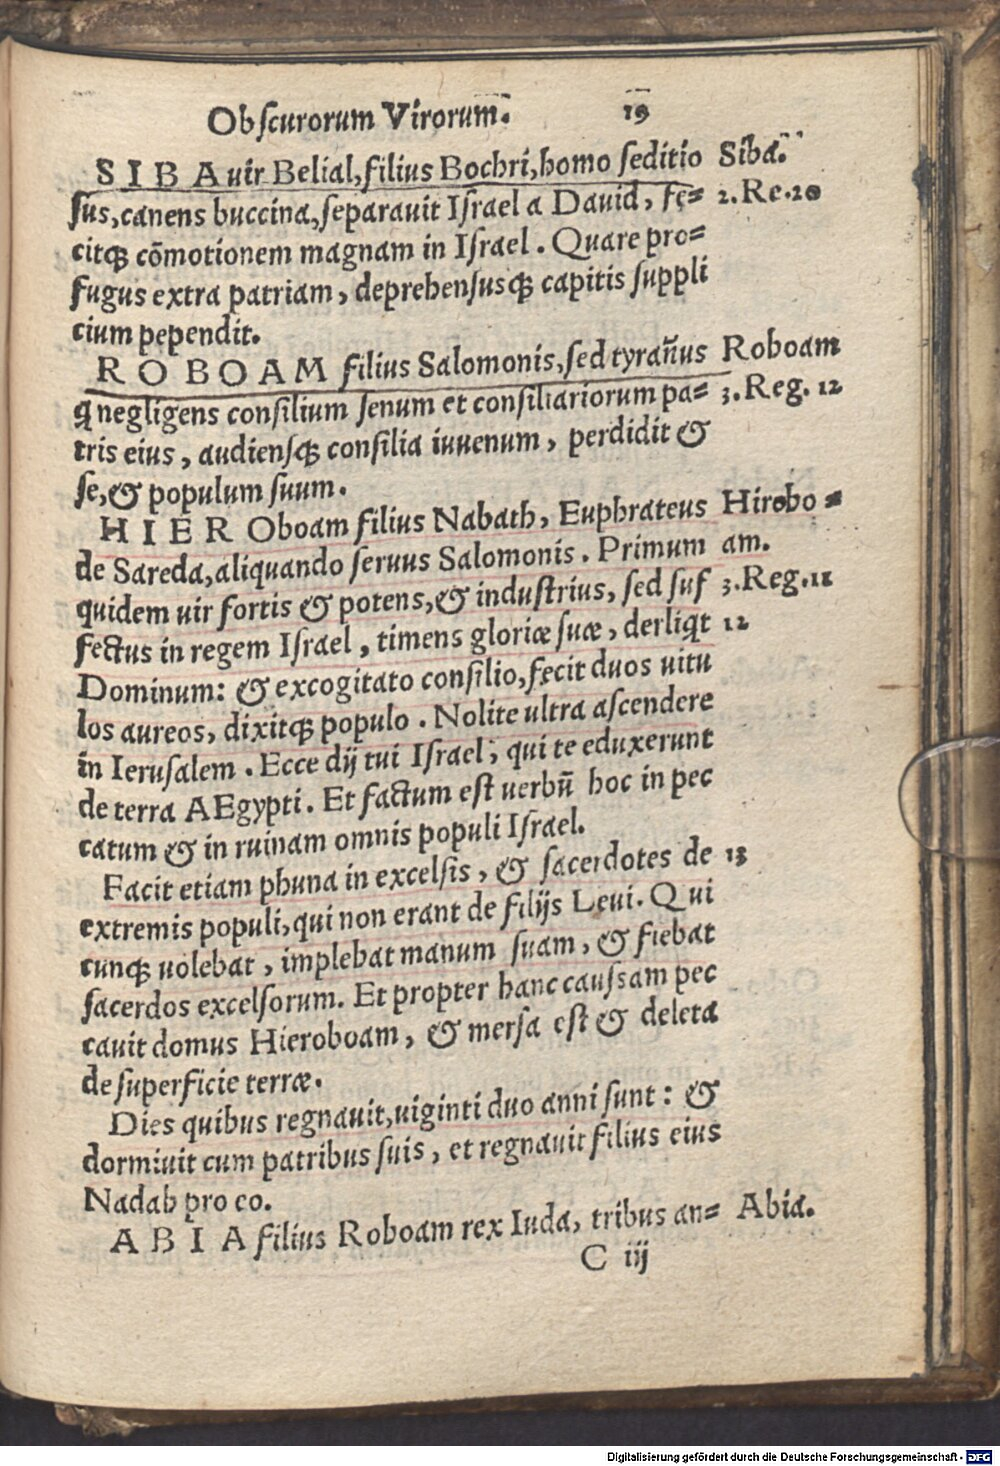 Obscurorum Virorum. 19
SIBA uir Belial, filius Bochri, homo seditio Siba.
sus, canens buccina, separauit Israel a Dauid, fe= 2.Re.20
citqꝫ cõmotionem magnam in Israel. Quare pro=
fugus extra patriam, deprehensusqꝫ capitis suppli
cium pependit.
ROBOAM filius Salomonis, sed tyrañus Roboam
q negligens consilium senum et consiliariorum pa= 3.Reg.12
tris eius, audiensqꝫ consilia iuuenum, perdidit &
se, & populum suum.
HIER Oboam filius Nabath, Euphrateus Hirobo=
de Sareda, aliquando seruus Salomonis. Primum am.
quidem uir fortis & potens, & industrius, sed suf 3.Reg.11
fectus in regem Israel, timens gloriæ suæ, derliqt 12
Dominum: & excogitato consilio, fecit duos uitu
los aureos, dixitqꝫ populo. Nolite ultra ascendere
in Ierusalem. Ecce dij tui Israel, qui te eduxerunt
de terra AEgypti. Et factum est uerbũ hoc in pec
catum & in ruinam omnis populi Israel.
Facit etiam phuna in excelsis, & sacerdotes de 13
extremis populi, qui non erant de filijs Leui. Qui
cunqꝫ uolebat, implebat manum suam, & fiebat
sacerdos excelsorum. Et propter hanc caussam pec
cauit domus Hieroboam, & mersa est & deleta
de superficie terræ.
Dies quibus regnauit, uiginti duo anni sunt: &
dormiuit cum patribus suis, et regnauit filius eius
Nadab pro eo.
ABIA filius Roboam rex Iuda, tribus an= Abia.
C iij
Digitalisierung gefördert durch die Deutsche Forschungsgemeinschaft - DFG